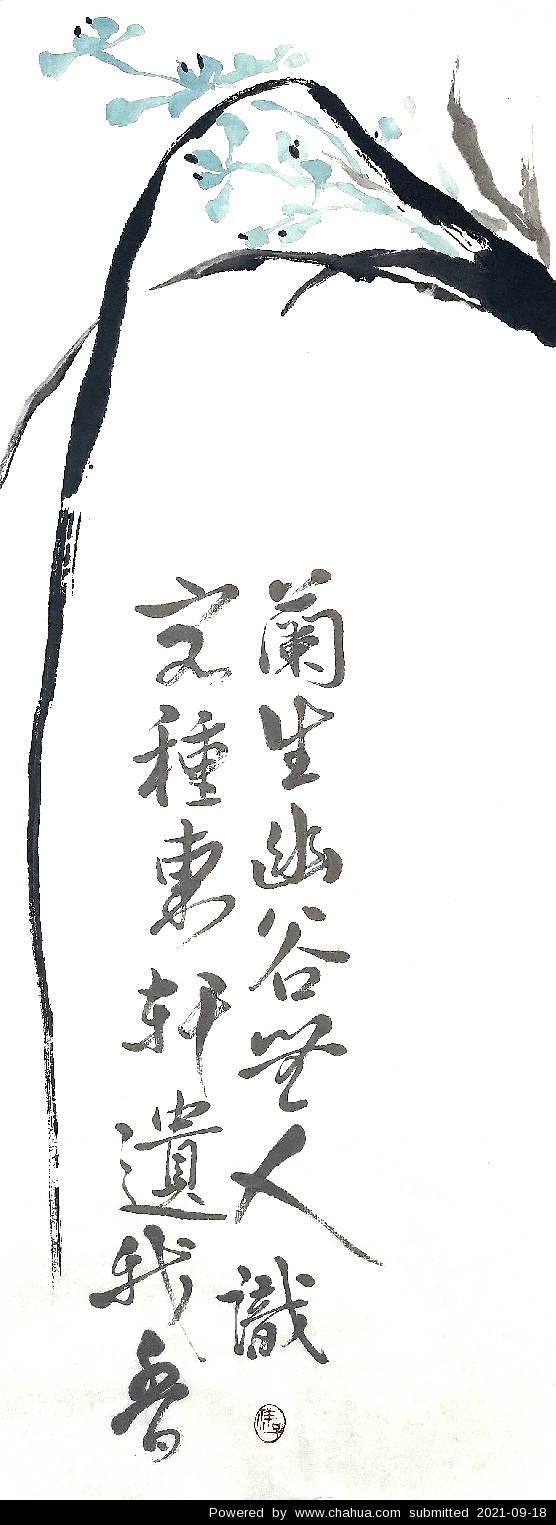 蘭生幽谷無人識
客種東軒遺我香
Powered by www.chahua.com submitted 2021-09-18